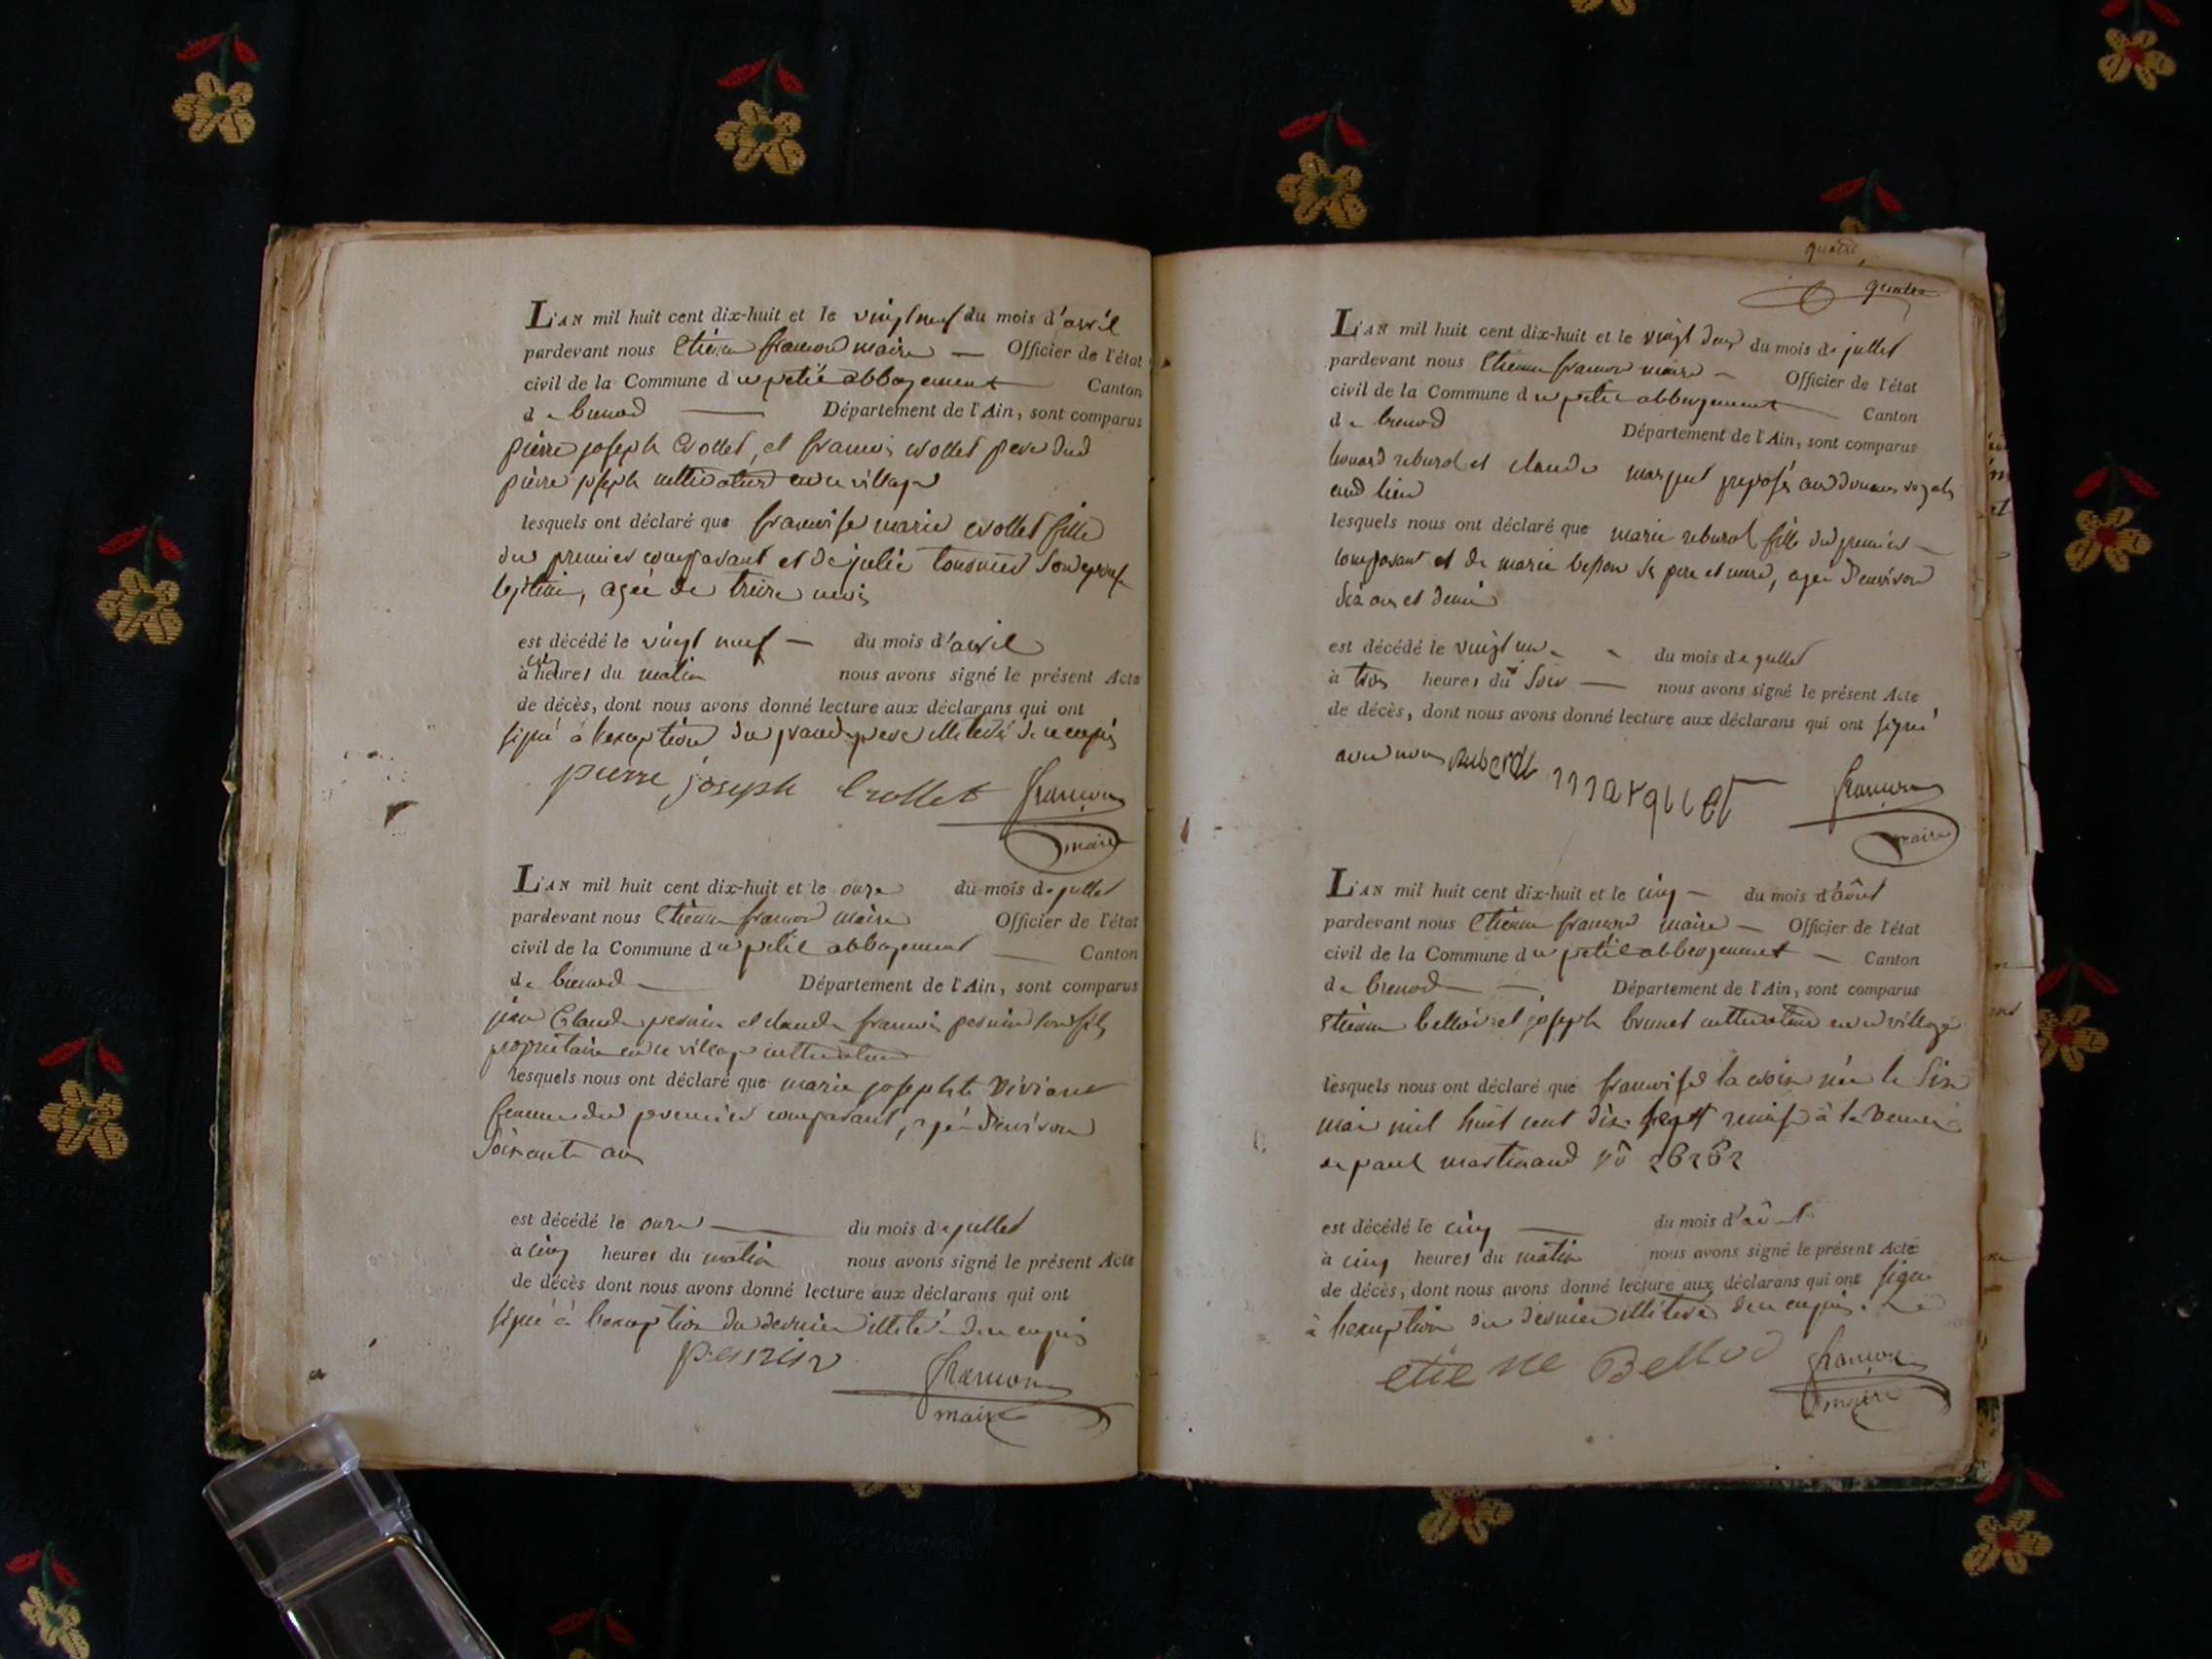 L'AN mil huit cent dix-huit et le vingt neuf du mois d'avril
pardevant nous Etienne francon maire — Officier de l'état
civil de la Commune du petit abbergement Canton
de brenod — Département de l'Ain, sont comparus
pierre joseph Crollet, et francois crollet pere dud
pierre joseph cultivateurs en ce village
lesquels ont déclaré que francoise marie crollet fille
du premier comparant et de julie tournier son epouse
legitime, agée de treize mois
est décédé le vingt neuf — du mois d'avril
à heures du matin nous avons signé le présent Acte
de décès, dont nous avons donné lecture aux déclarans qui ont
signé à l'exception du grand pere illiteré de ce enquis
pierre joseph Crollet francon
maire
L'AN mil huit cent dix-huit et le onze du mois de jullet
pardevant nous Etienne francon maire Officier de l'état
civil de la Commune du petit abbergement — Canton
de brenod — Département de l'Ain, sont comparus
jean Claude perrin et claude francois perrin son fils
proprietaire en ce village cultivateurs
lesquels nous ont déclaré que marie josephte Viviant
femme du premier comparant, agée d'environ
soixante ans
est décédé le onze — du mois de jullet
à cinq heures du matin nous avons signé le présent Acte
de décès dont nous avons donné lecture aux déclarans qui ont
signé à l'exception du dernier illiteré de ce enquis
perrin francon
maire
quatre
L'AN mil huit cent dix-huit et le vingt deux du mois de jullet
pardevant nous Etienne francon maire — Officier de l'état
civil de la Commune du petit abbergement Canton
de brenod Département de l'Ain, sont comparus
et claude marquet preposés aux douanes royales
aud lieu
lesquels nous ont déclaré que marie fille du premier —
comparant et de marie besson ses pere et mere, agée d'environ
dix ans et demi
est décédé le vingt un - - du mois de jullet
à trois heures du soir — nous avons signé le présent Acte
de décès, dont nous avons donné lecture aux déclarans qui ont signé
avec nous marquet francon
maire
L'AN mil huit cent dix-huit et le cinq — du mois d'août
pardevant nous Etienne francon maire — Officier de l'état
civil de la Commune du petit abbergement — Canton
de brenod — Département de l'Ain, sont comparus
Etienne bellod et joseph brunet cultivateurs en ce village
lesquels nous ont déclaré que francoise la croix née le six
mai mil huit cent dix sept remise à la
de paul martinand n° 26262
est décédé le cinq — du mois d'août
à cinq heures du matin nous avons signé le présent Acte
de décès, dont nous avons donné lecture aux déclarans qui ont signé
à l'exception du dernier illiteré de ce enquis.
etiene Bellod francon
maire